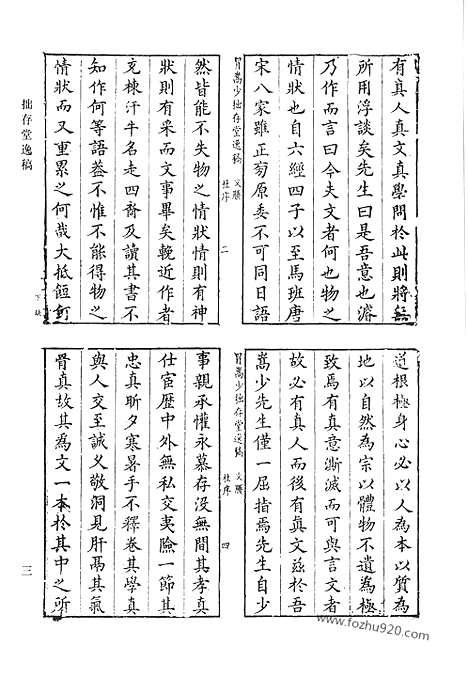 有真人真文真學問於此則將無
所用浮談矣先生曰是吾意也濬
乃作而言曰今夫文者何也物之
情狀也自六經四子以至馬班唐
宋八家雖正葯原委不可同日語
冒嵩少拙存堂逸稿
文賸
杜序
二
然皆能不失物之情狀情則有神
狀則有采而文事畢矣輓近作者
充棟汗牛名走四裔及讀其書不
知作何等語葢不惟不能得物之
情狀而又重累之何哉大抵飣餖
下缺
道根極身心必以人為本以質為
地以自然為宗以體物不遺為極
致焉有真意澌滅而可與言文者
故必有真人而後有真文茲於吾
嵩少先生僅一屈指焉先生自少
冒嵩少拙存堂逸稿
文賸
杜序
四
事親承懽永慕存没無間其孝真
仕宦歷中外無私交夷險一節其
忠真昕夕寒暑手不釋卷其學真
與人交至誠义敬洞見肝鬲其氣
骨真故其為文一本於其中之所
拙存堂逸稿
三
www.fozhu920.com